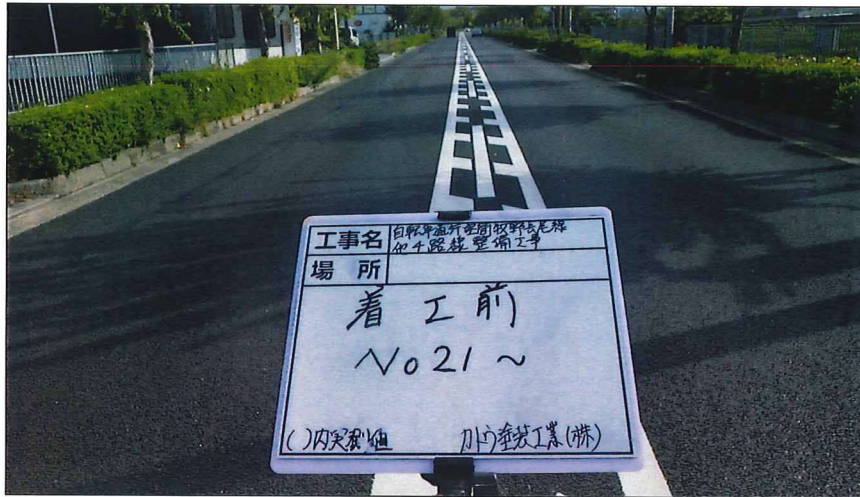 工事名 自転車通行空間牧野長尾線
他4路線整備工事
場所
着工前
No21～
( )内実測値 カトウ塗装工業(株)